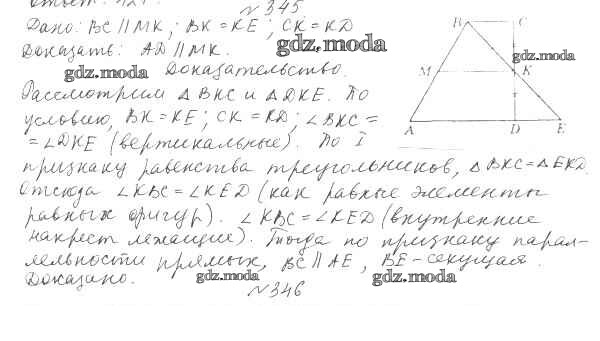 Ответ: 121.
№345
Дано: BC || MK; BK = KE; CK = KD
Доказать: AD || MK.
Доказательство.
Рассмотрим △BKC и △DKE. По
условию, BK = KE; CK = KD; ∠BKC =
= ∠DKE (вертикальные). По I
признаку равенства треугольников, △BKC = △EKD.
Отсюда ∠KBC = ∠KED (как равные элементы
равных фигур). ∠KBC = ∠KED (внутренние
накрест лежащие). Тогда по признаку парал-
лельности прямых, BC || AE, BE - секущая.
Доказано.
№346
B C
M K
A D E
gdz.moda
gdz.moda
gdz.moda
gdz.moda
gdz.moda